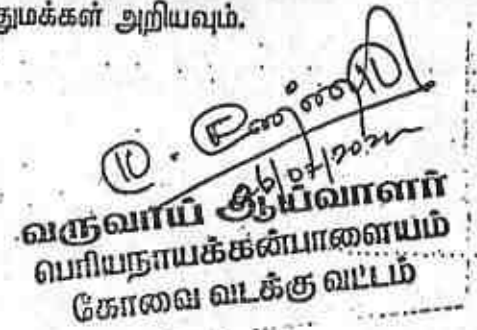 துமக்கள் அறியவும்.
வருவாய் ஆய்வாளர்
பெரியநாயக்கன்பாளையம்
கோவை வடக்கு வட்டம்